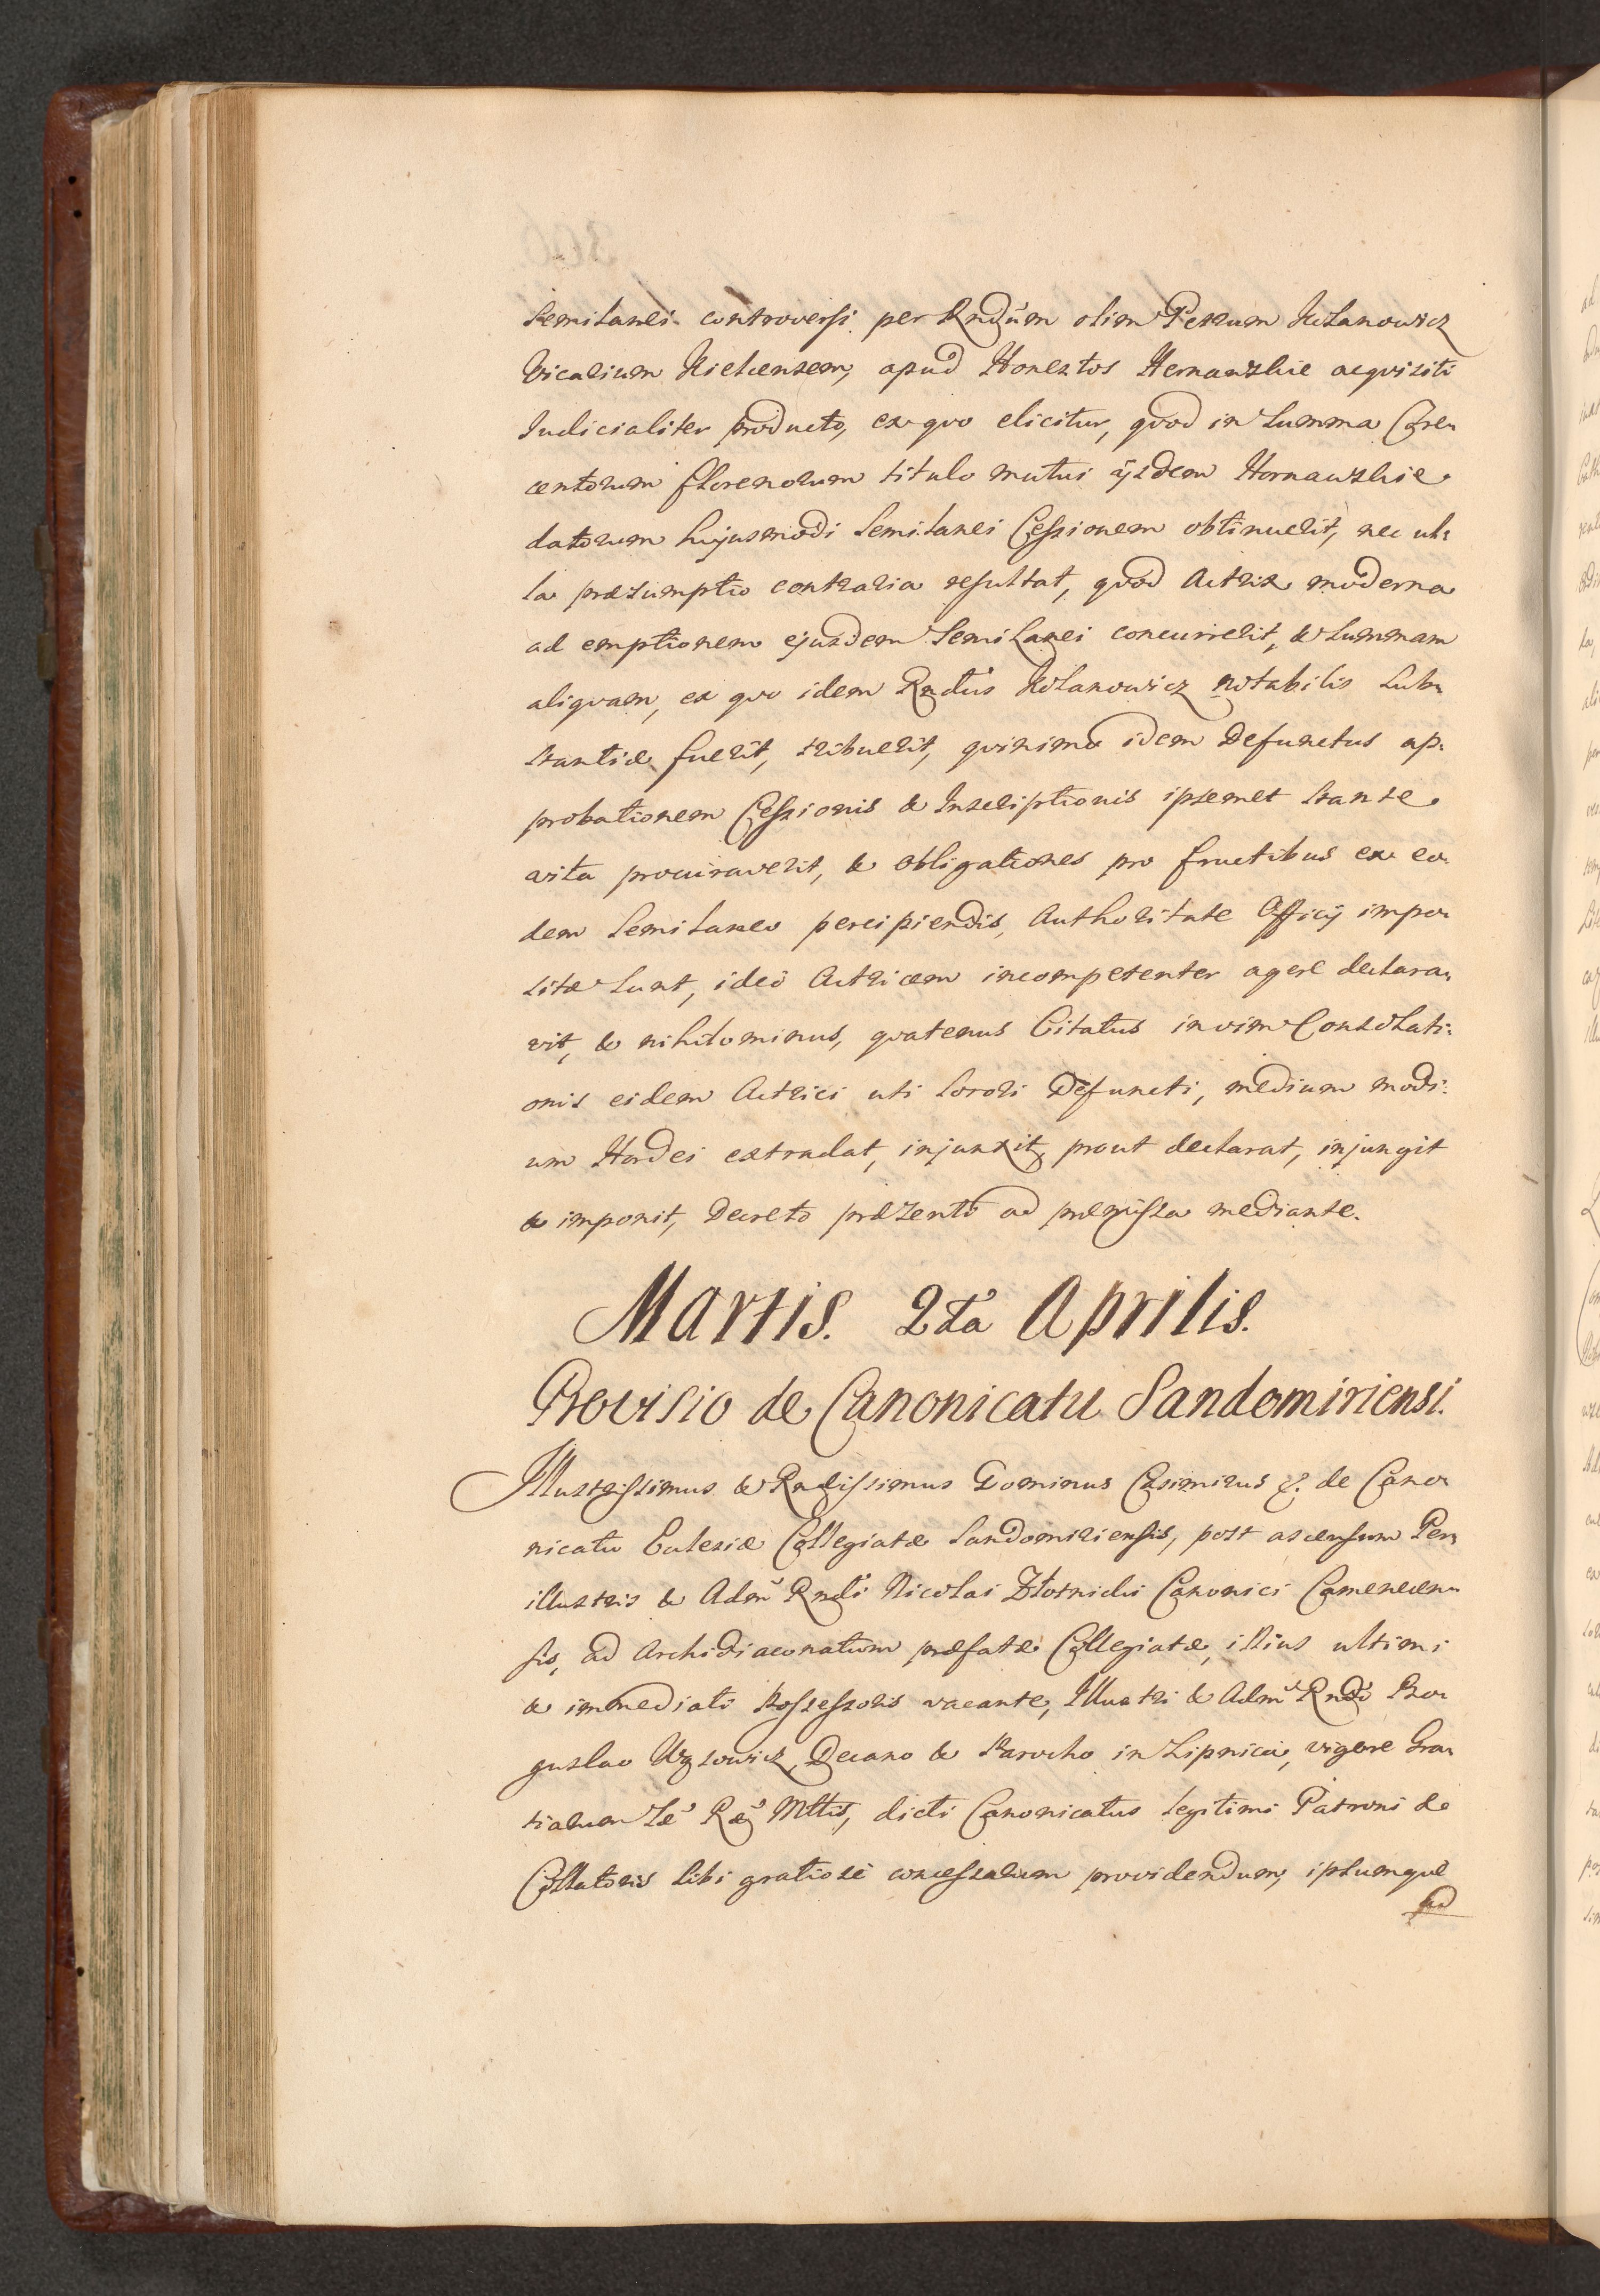 Semilanei controversi per Rndum olim Petrum Kolanowicz
Vicarium Kielcensem, apud Honestos Hernawskie acqvisiti
Iudicialiter producto, ex qvo elicitur, qvod in Summa Tre-
centorum florenorum titulo mutui ijsdem Hornawskie
datorum hujusmodi Semilanei Cessionem obtinuerit, nec ul-
la præsumptio contraria resultat, qvod Actrix moderna
ad emptionem ejusdem Semilanei concurrerit, & Summam
aliqvam, ex qvo idem Rndus Kolanowicz notabilis Sub-
stantiæ fuerit, tribuerit, qvinimo idem Defunctus ap-
probationem Cessionis & Inscriptionis ipsemet stante
vita procuraverit, & obligationes pro fructibus ex eo-
dem Semilaneo percipiendis, Authoritate Officij impo-
sitæ sunt, ideo Actricem incompetenter agere declara-
vit, & nihilominus, qvatenus Citatus in vim Consolati-
onis eidem Actrici uti Sorori Defuncti, medium modi-
um Hordei extradat, injunxit, prout declarat, injungit
& imponit, Decreto præsenti ad præmissa mediante.
Martis. 2da Aprilis.
Provisio de Canonicatu Sandomiriensi.
Illustrissimus & Rndissimus Dominus Casimirus &. de Cano-
nicatu Eclesiæ Collegiatæ Sandomiriensis, post ascensum Per-
illustris & Adm Rndi Nicolai Złotnicki Canonici Camenecen-
sis, ad Archidiaconatum præfatæ Collegiatæ, illius ultimi
& immediati Possessoris vacante, Illustri & Adm Rndo Bo-
guslao Decano & Parocho in Lipnica, vigore Gra-
tiarum Sæ Ræ Mttis, dicti Canonicatus legitimi Patroni &
Collatoris Sibi gratiosè concessarum providendum, ipsumqve
ad